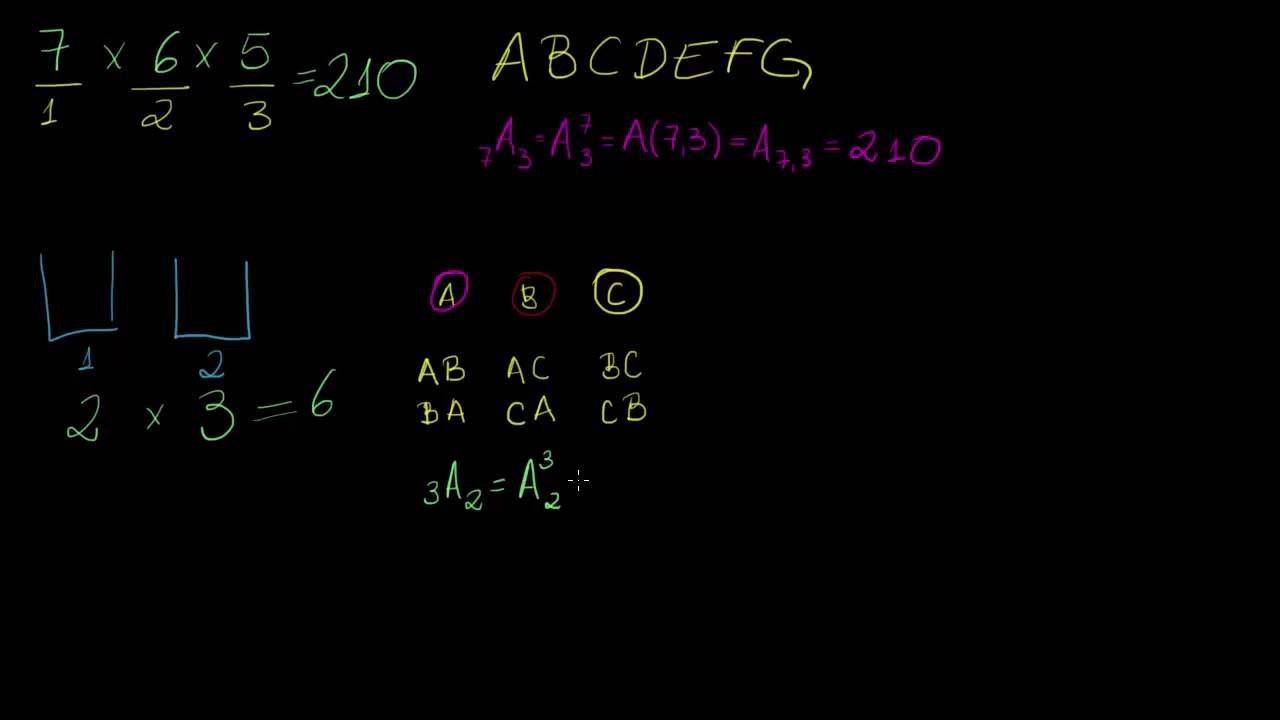 7/1 × 6/2 × 5/3 = 210
ABCDEFG
₇A₃ = A₃⁷ = A(7,3) = A₇,₃ = 210
1 2
2 × 3 = 6
A B C
AB AC BC
BA CA CB
₃A₂ = A₂³